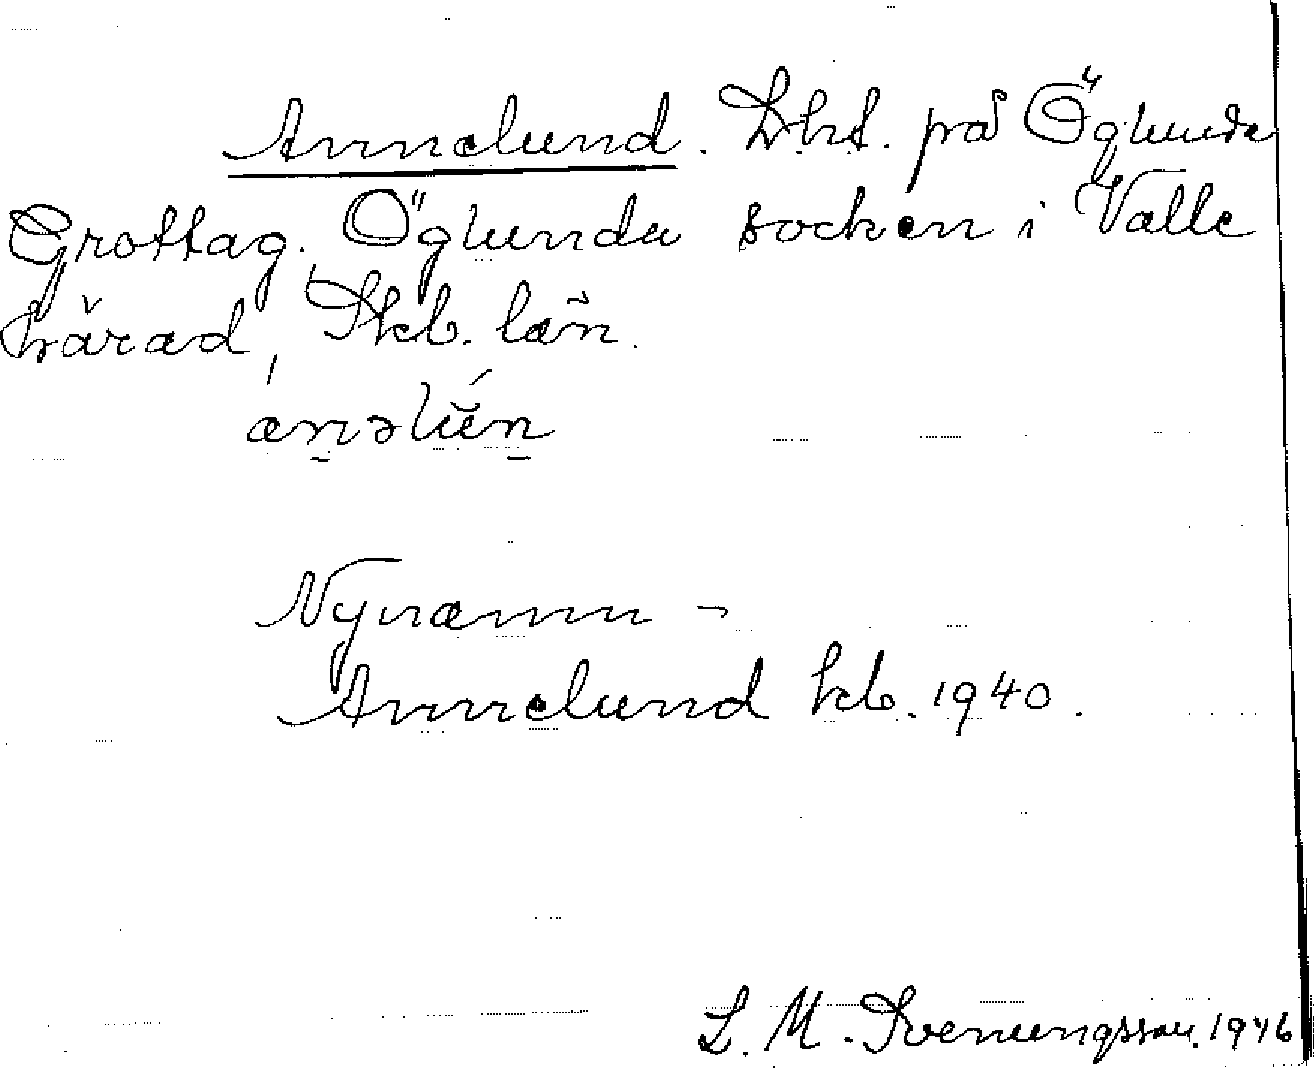 Annelund. Lht. på Öglunda
Grottag. Öglunda socken i Valle
härad, Skb. län.
ánəlún
Nynamn -
Annelund kb. 1940.
L. M. Svenungsson. 1946